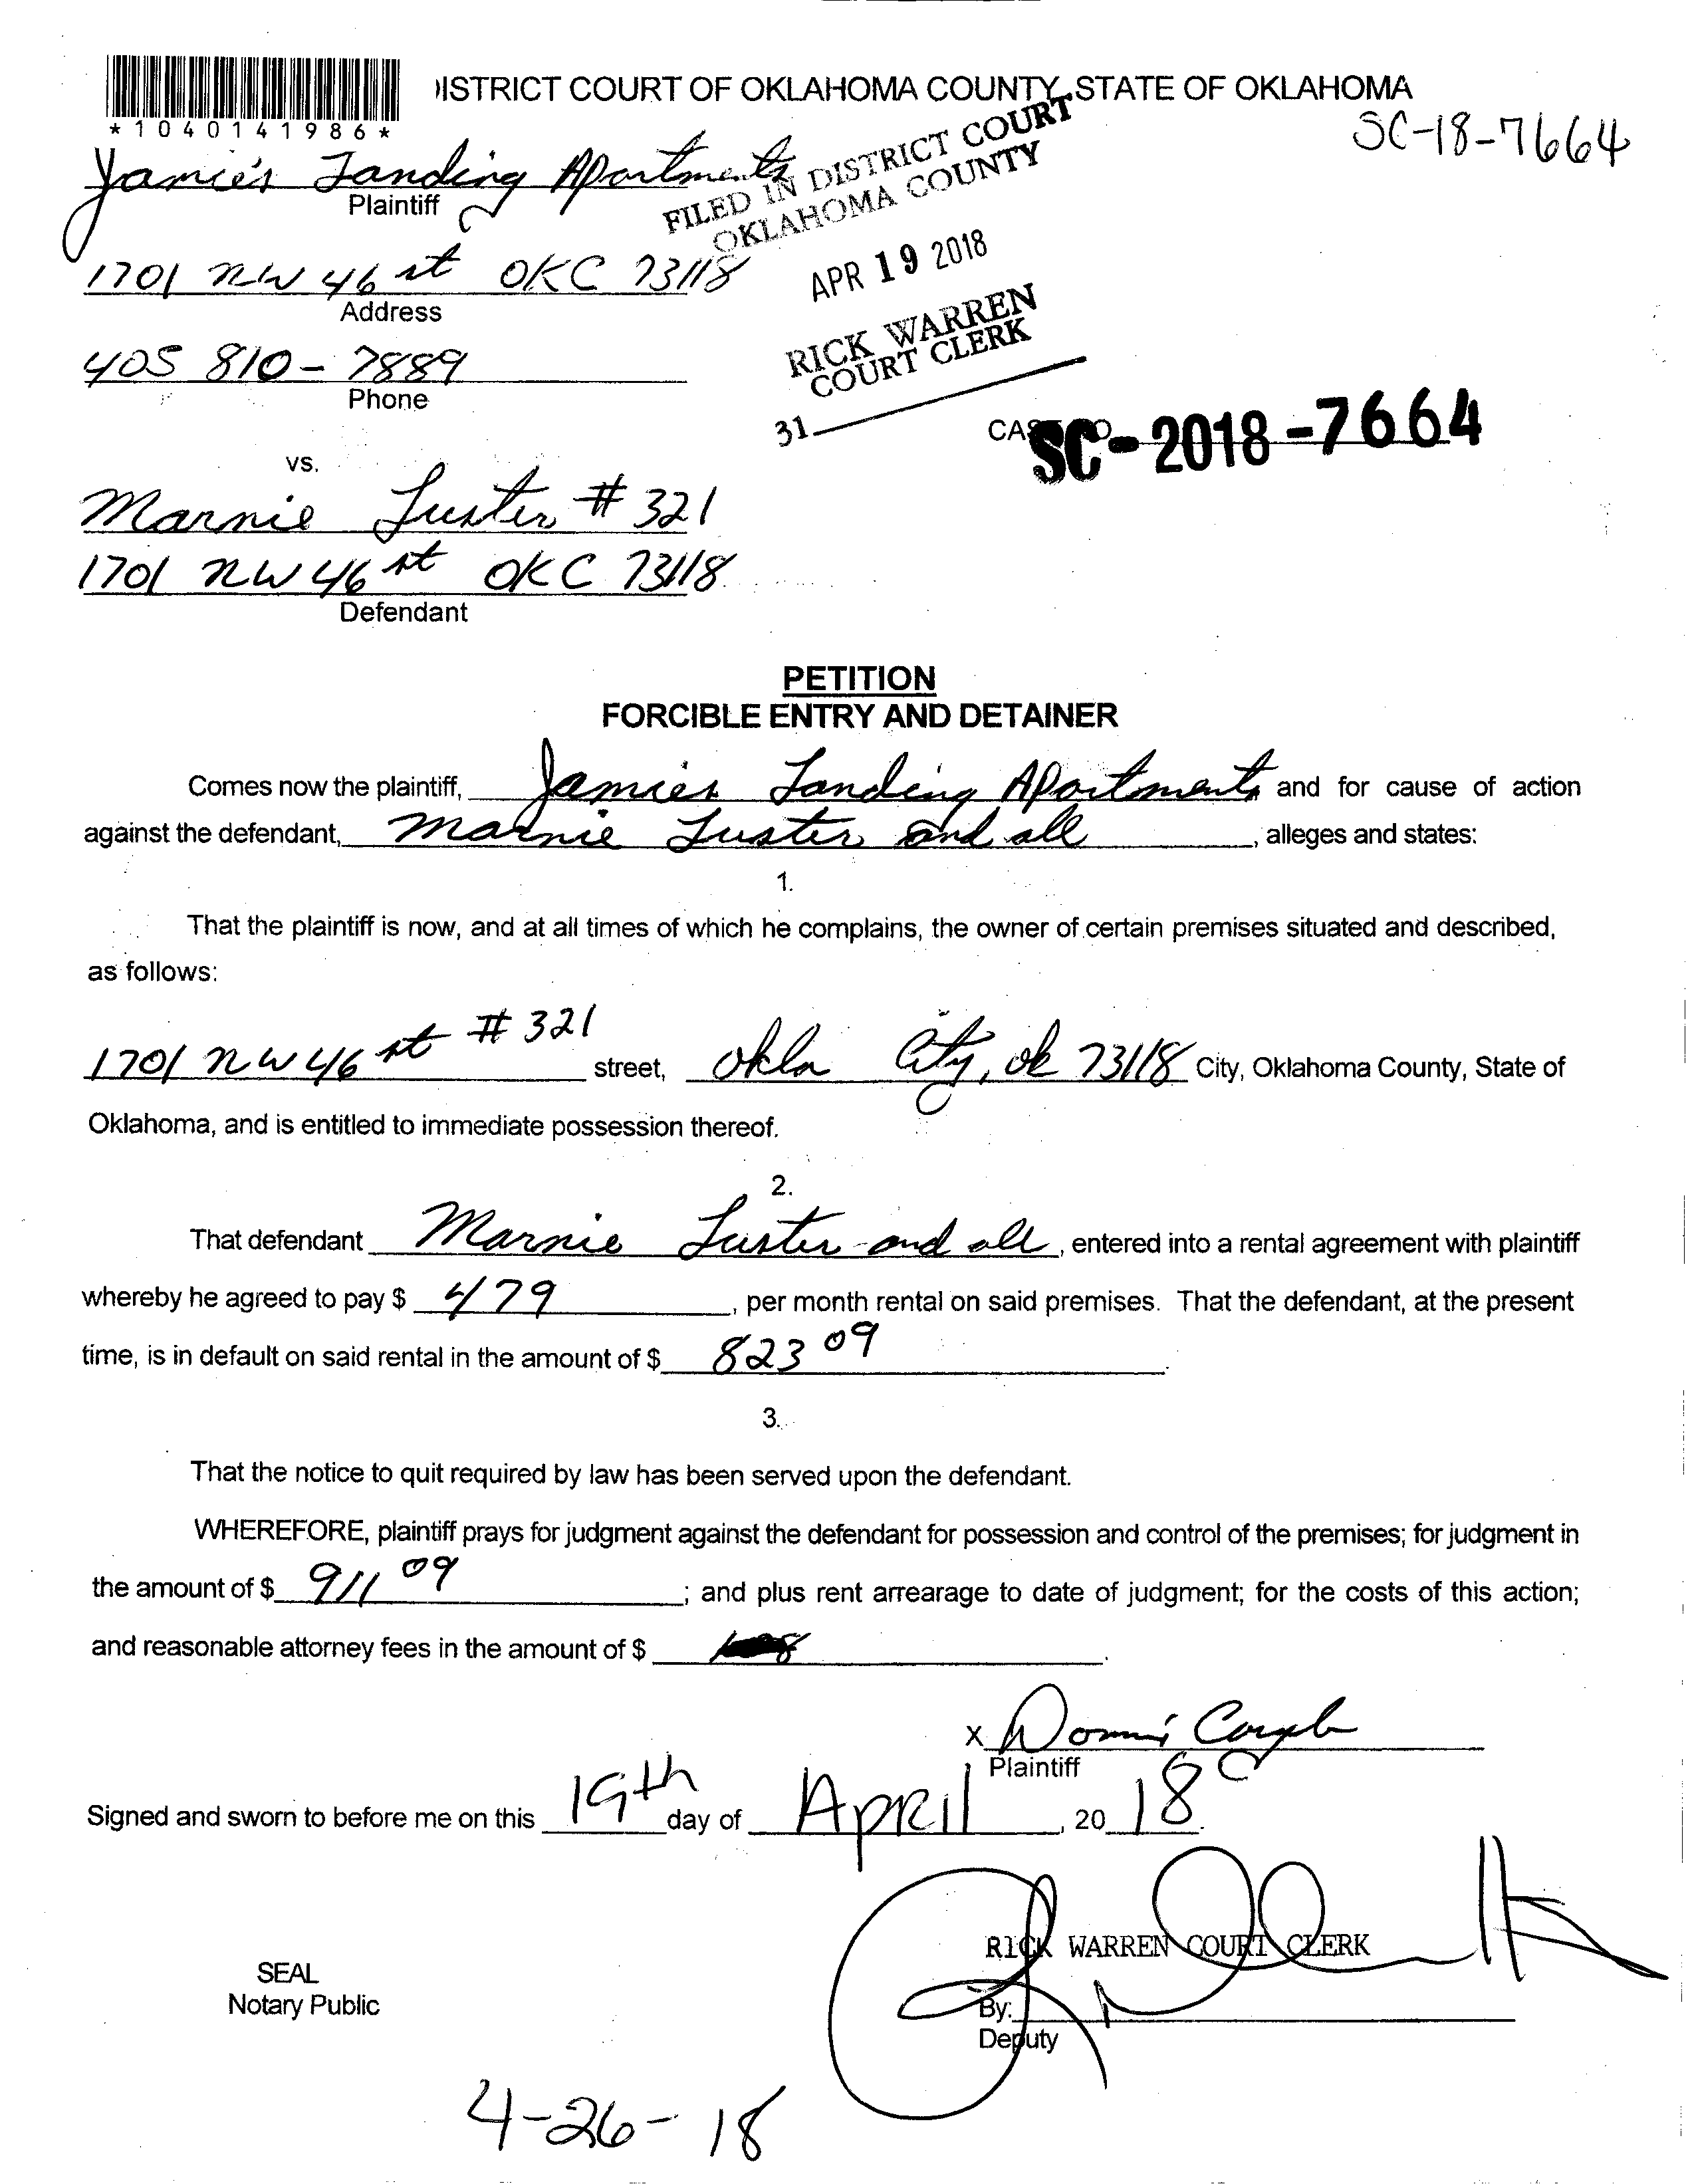 ISTRICT COURT OF OKLAHOMA COUNTY, STATE OF OKLAHOMA
*1040141986*
SC-18-7664
Jamie's Landing Apartments
Plaintiff
FILED IN DISTRICT COURT
OKLAHOMA COUNTY
1701 NW 46 st OKC 73118
Address
APR 19 2018
RICK WARREN
COURT CLERK
405 810-7889
Phone
31
SC-2018-7664
vs.
Marnie Luster #321
1701 NW 46 st OKC 73118
Defendant
PETITION
FORCIBLE ENTRY AND DETAINER
Comes now the plaintiff, Jamies Landing Apartments and for cause of action
against the defendant, Marnie Luster and all, alleges and states:
1.
That the plaintiff is now, and at all times of which he complains, the owner of certain premises situated and described,
as follows:
1701 NW 46 st #321 street, Okla City, ok 73118 City, Oklahoma County, State of
Oklahoma, and is entitled to immediate possession thereof.
2.
That defendant Marnie Luster and all, entered into a rental agreement with plaintiff
whereby he agreed to pay $ 479, per month rental on said premises. That the defendant, at the present
time, is in default on said rental in the amount of $ 823 09.
3.
That the notice to quit required by law has been served upon the defendant.
WHEREFORE, plaintiff prays for judgment against the defendant for possession and control of the premises; for judgment in
the amount of $ 911 09; and plus rent arrearage to date of judgment; for the costs of this action;
and reasonable attorney fees in the amount of $
X
Plaintiff
Signed and sworn to before me on this 19th day of APRIL, 20 18.
RICK WARREN COURT CLERK
SEAL
Notary Public
By:
Deputy
4-26-18